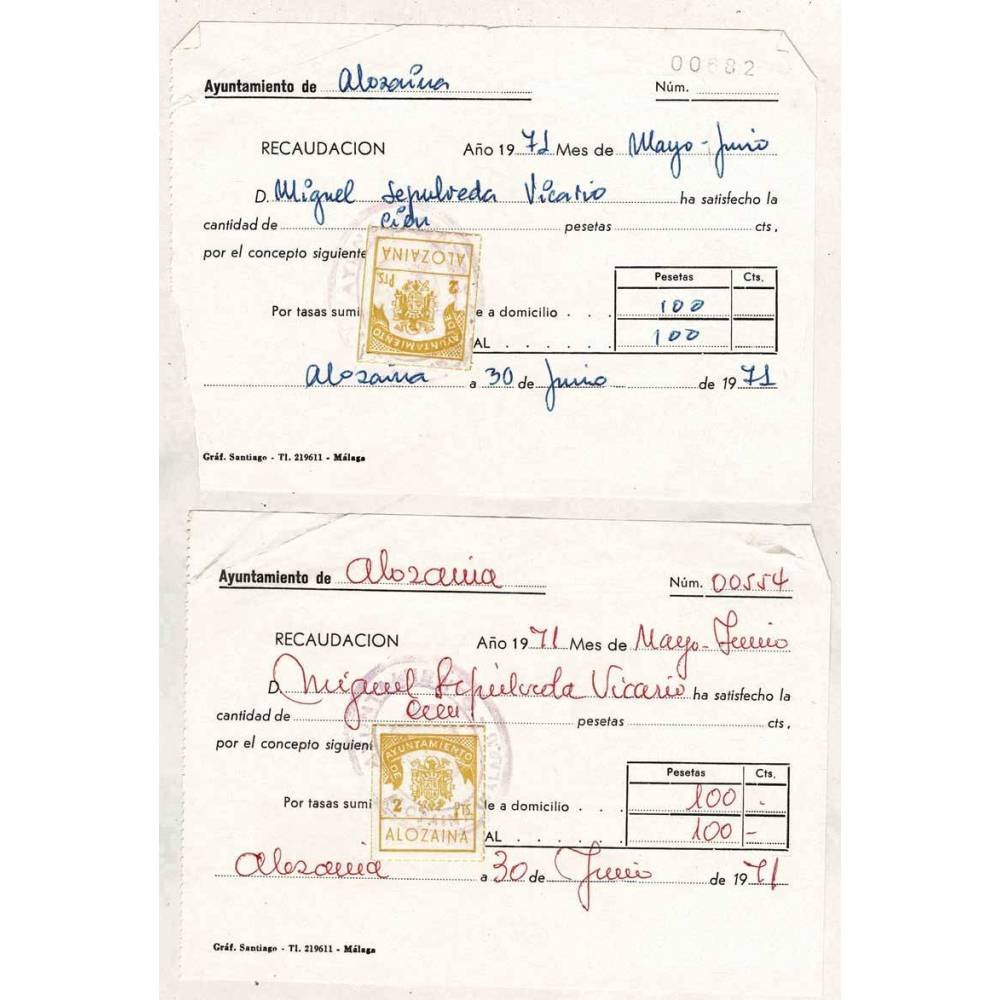 00682
Ayuntamiento de Alozaina Núm.
RECAUDACION Año 1971 Mes de Mayo-Junio
D. Miguel Sepulveda Vicario ha satisfecho la
cantidad de cien pesetas cts,
por el concepto siguiente
ALOZAINA
2 Pts.
AYUNTAMIENTO
DE
Pesetas Cts.
Por tasas sumi e a domicilio . . . 100
AL . . . . . . 100
Alozaina a 30 de Junio de 1971
Gráf. Santiago - Tl. 219611 - Málaga
Ayuntamiento de Alozaina Núm. 00554
RECAUDACION Año 1971 Mes de Mayo-Junio
D. Miguel Sepúlveda Vicario ha satisfecho la
cantidad de cien pesetas cts,
por el concepto siguien
AYUNTAMIENTO
DE
2 Pts.
ALOZAINA
Pesetas Cts.
Por tasas sumi le a domicilio . . . 100 -
AL . . . . . . 100 -
Alozaina a 30 de Junio de 1971
Gráf. Santiago - Tl. 219611 - Málaga